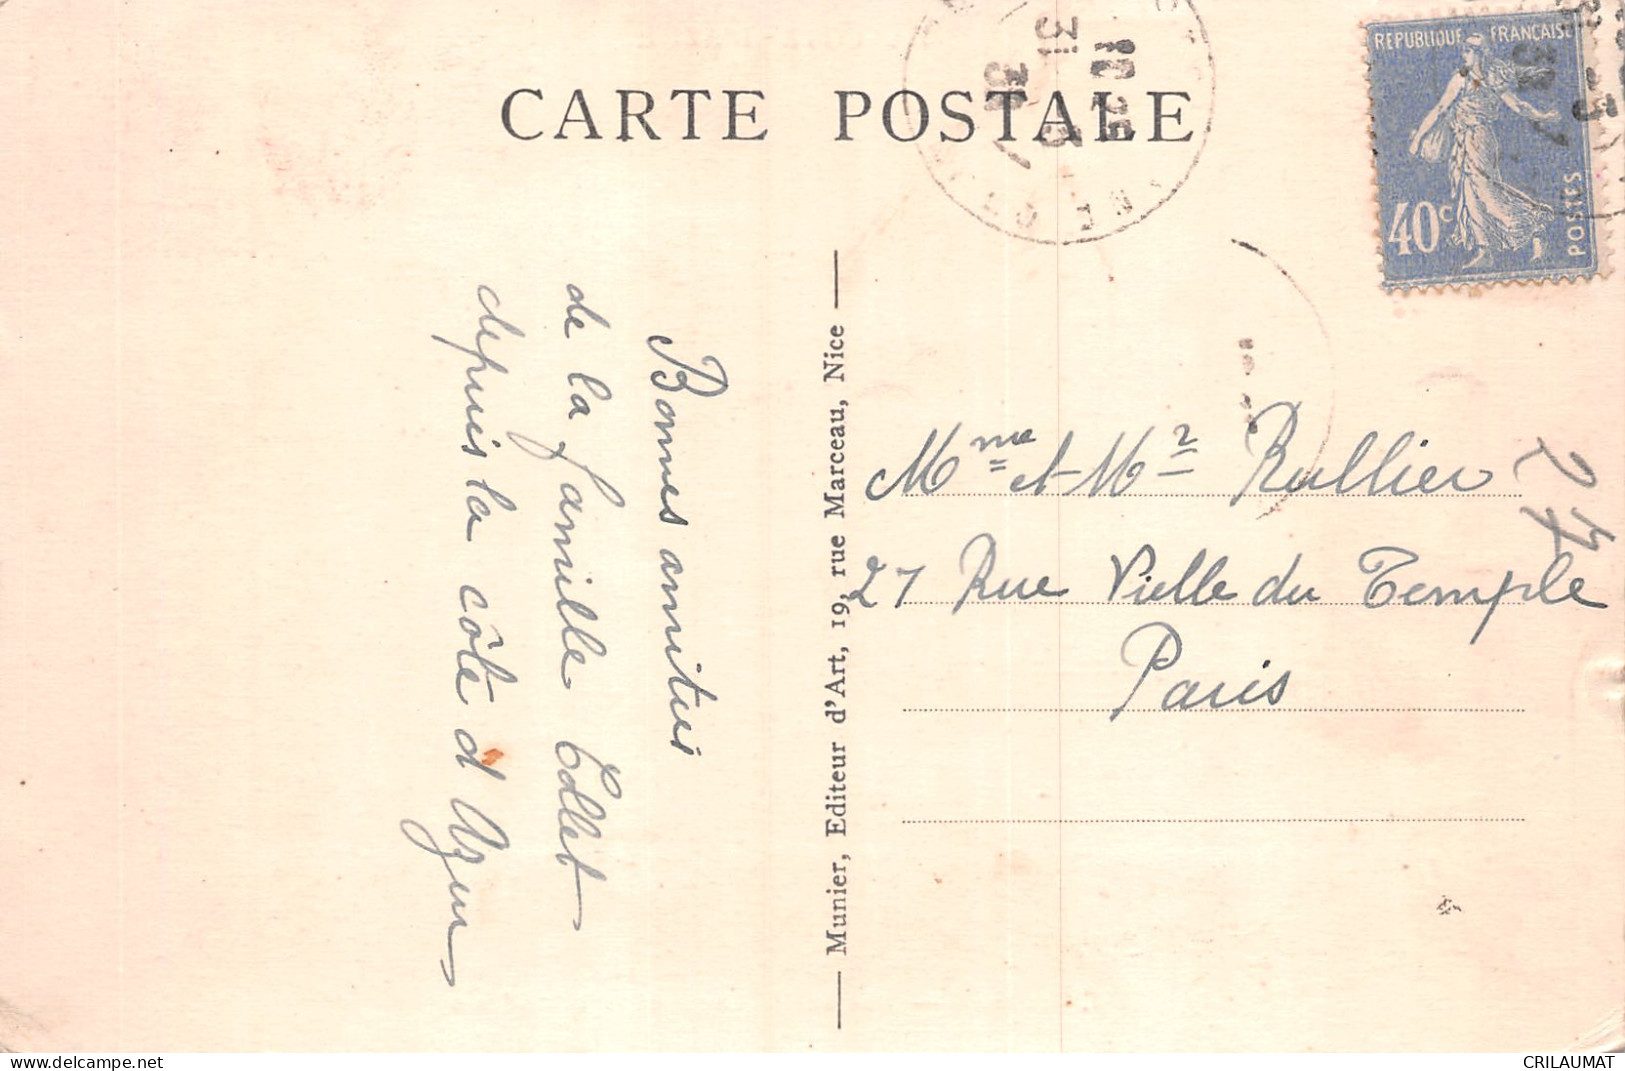 CARTE POSTALE
REPUBLIQUE FRANÇAISE
40c
POSTES
10 25
31
Bonnes amitiés
de la famille Collet
depuis la côte d'Azur
Munier, Editeur d'Art, 19, rue Marceau, Nice
Mme et Mr Rullier
27 Rue Vielle du Temple
Paris
27
www.delcampe.net
CRILAUMAT